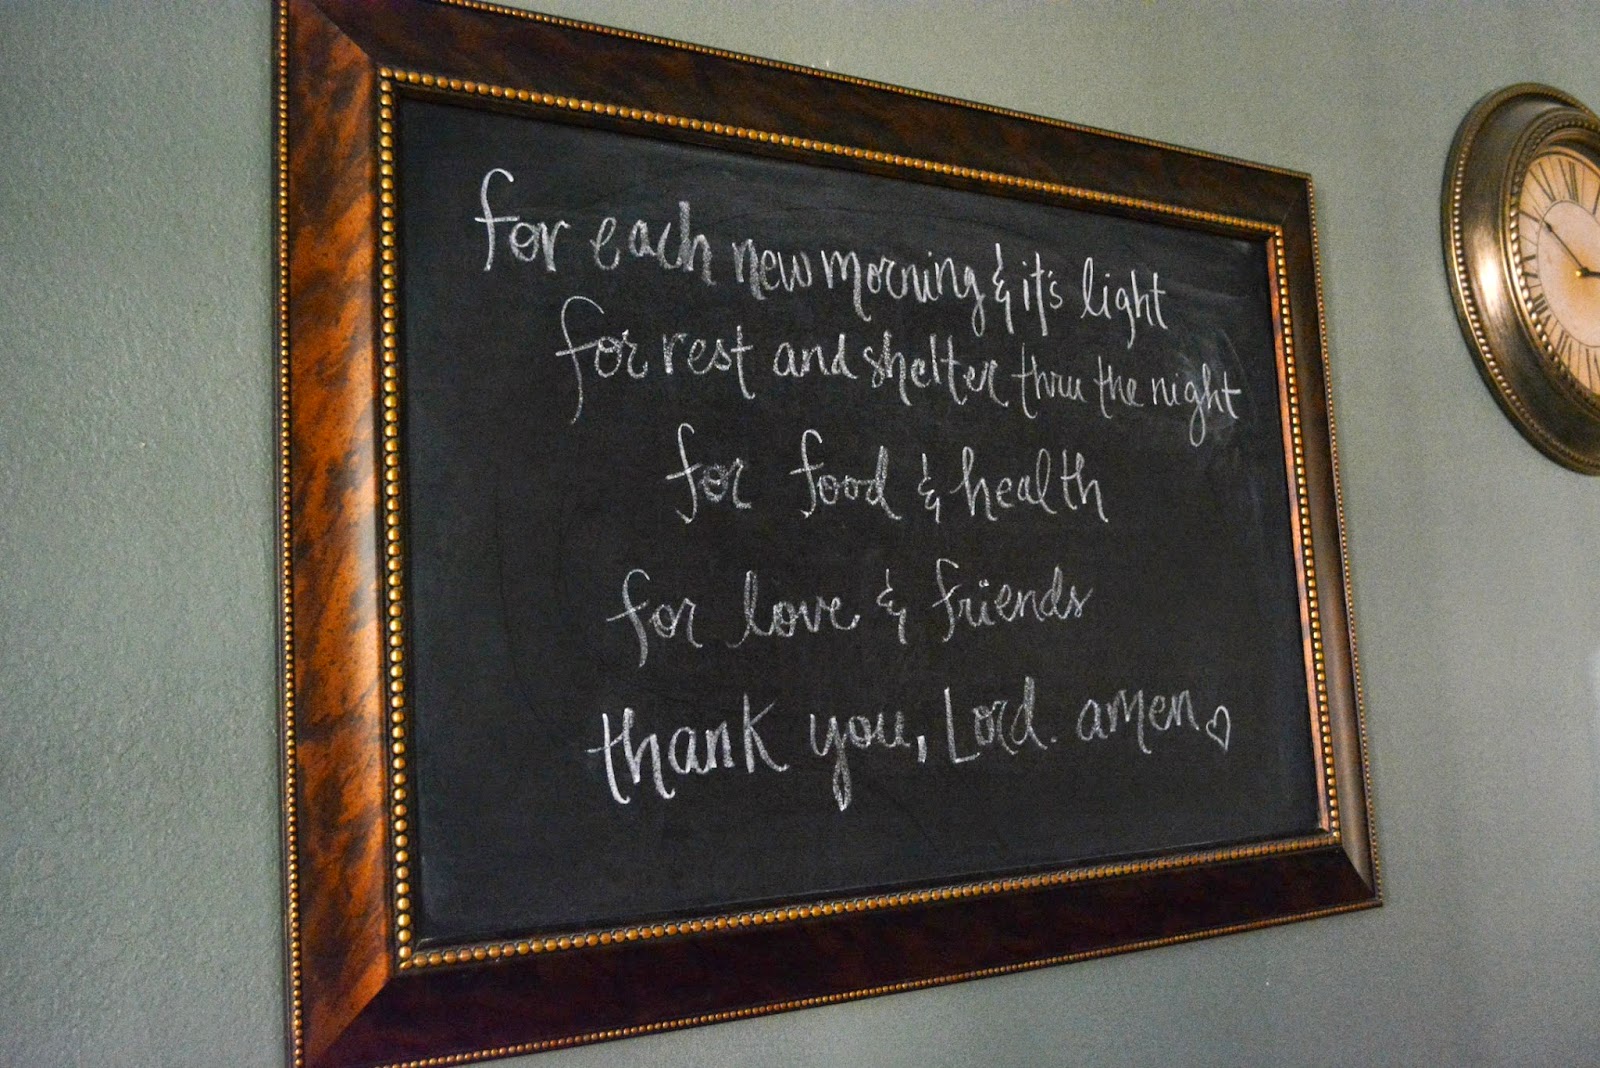 for each new morning & it's light
for rest and shelter thru the night
for food & health
for love & friends
thank you, Lord. amen ♡